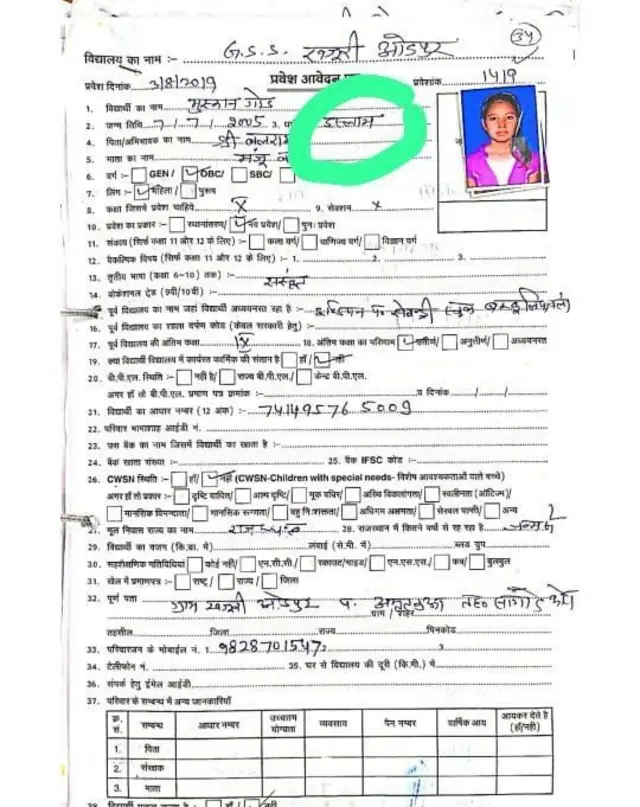 34
विद्यालय का नाम :- G.S.S. खजूरी ओडपुर
प्रवेश दिनांक 3/8/2019 प्रवेश आवेदन प्रवेशांक 1419
1. विद्यार्थी का नाम मुस्कान गोड
2. जन्म तिथि 7/7/2005 3. इस्लाम
4. पिता/अभिभावक का नाम श्री
5. माता का नाम मंजू
6. वर्ग :- GEN / OBC/ SBC/
7. लिंग :- महिला / पुरूष
8. कक्षा जिसमें प्रवेश चाहिये X 9. सेक्शन x
10. प्रवेश का प्रकार :- स्थानांतरण/ नव प्रवेश/ पुनः प्रवेश
11. संकाय (सिर्फ कक्षा 11 और 12 के लिए) :- कला वर्ग/ वाणिज्य वर्ग/ विज्ञान वर्ग
12. वैकल्पिक विषय (सिर्फ कक्षा 11 और 12 के लिए) :- 1. 2. 3.
13. तृतीय भाषा (कक्षा 6-10) तक) :- संस्कृत
14. वोकेशनल ट्रेड (9वीं/10वीं) :-
15. पूर्व विद्यालय का नाम जहां विद्यार्थी अध्ययनरत रहा है :-
16. पूर्व विद्यालय का शाला दर्पण कोड (केवल सरकारी हेतु) :-
17. पूर्व विद्यालय की अंतिम कक्षा IX 18. अंतिम कक्षा का परिणाम उत्तीर्ण/ अनुत्तीर्ण/ अध्ययनरत
19. क्या विद्यार्थी विद्यालय में कार्यरत कार्मिक की संतान है हाँ/ नहीं
20. बी.पी.एल. स्थिति :- नही है/ राज्य बी.पी.एल./ केन्द्र बी.पी.एल.
अगर हाँ तो बी.पी.एल. प्रमाण पत्र क्रमांक :- व दिनांक / /
21. विद्यार्थी का आधार नम्बर (12 अंक) :- 741495765009
22. परिवार भामाशाह आईडी नं.
23. उस बैंक का नाम जिसमें विद्यार्थी का खाता है :-
24. बैंक खाता संख्या :- 25. बैंक IFSC कोड :-
26. CWSN स्थिति :- हाँ/ नहीं (CWSN-Children with special needs- विशेष आवश्यकताओं वाले बच्चे)
अगर हाँ तो प्रकार :- दृष्टि बाधित/ अल्प दृष्टि/ मूक बधिर/ अस्थि विकलांगता/ स्वलीनता (ऑटिज्म)/
मानसिक विमन्दता/ मानसिक रूग्णता/ बहु निःशक्तता/ अधिगम अक्षमता/ सेरेबल पाल्सी/ अन्य
27. मूल निवास राज्य का नाम राजस्थान 28. राजस्थान में कितने वर्षों से रह रहा है जन्म से
29. विद्यार्थी का वजन (कि.ग्रा. में) लंबाई (से.मी. में) ब्लड ग्रुप
30. सहशैक्षणिक गतिविधियां कोई नहीं/ एन.सी.सी./ स्काउट/गाइड/ एन.एस.एस./ कब/ बुलबुल
31. खेल में प्रमाणपत्र :- राष्ट्र/ राज्य/ जिला
32. पूर्ण पता ग्राम खजूरी ओडपुर
ग्राम / शहर
तहसील जिला राज्य पिनकोड
33. परिवारजन के मोबाईल नं. 1. 9828701547 2. 3.
34. टेलीफोन नं. 35. घर से विद्यालय की दूरी (कि.मी.) में
36. संपर्क हेतु ईमेल आईडी
37. परिवार के सम्बन्ध में अन्य जानकारियाँ
क्र. सं. सम्बन्ध आधार नम्बर उच्चतम योग्यता व्यवसाय पेन नम्बर वार्षिक आय आयकर देते है (हाँ/नही)
1. पिता
2. संरक्षक
3. माता